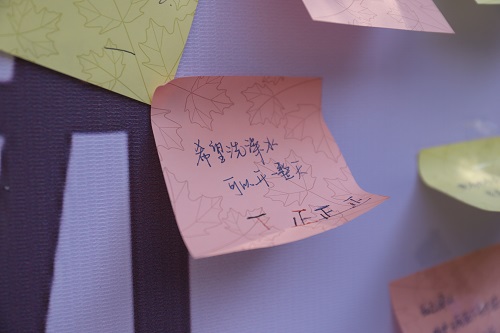 希望洗澡水
可以开一整天
下 正正正